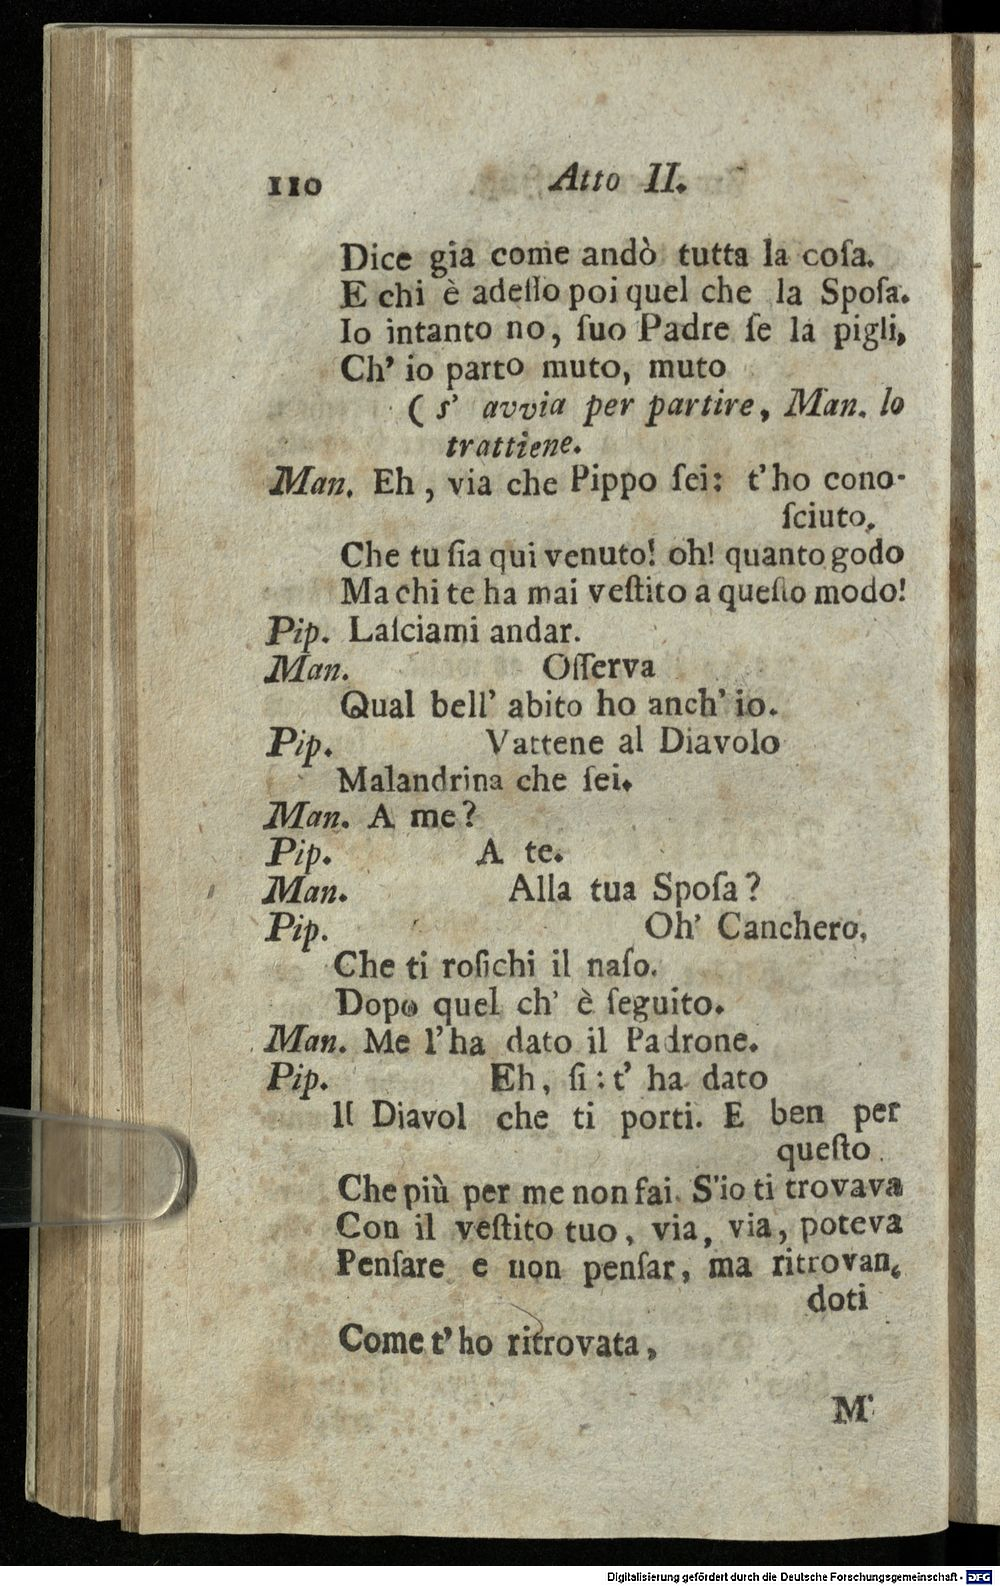 110 Atto II.
Dice gia come andò tutta la coſa.
E chi è adeſſo poi quel che la Spoſa.
Io intanto no, ſuo Padre ſe la pigli,
Ch' io parto muto, muto
( s' avvia per partire, Man. lo
trattiene.
Man. Eh, via che Pippo ſei: t'ho cono-
ſciuto.
Che tu ſia qui venuto! oh! quanto godo
Ma chi te ha mai veſtito a queſto modo!
Pip. Laſciami andar.
Man. Oſſerva
Qual bell' abito ho anch' io.
Pip. Vattene al Diavolo
Malandrina che ſei.
Man. A me?
Pip. A te.
Man. Alla tua Spoſa?
Pip. Oh' Canchero,
Che ti roſichi il naſo.
Dopo quel ch' è ſeguito.
Man. Me l'ha dato il Padrone.
Pip. Eh, ſi: t' ha dato
Il Diavol che ti porti. E ben per
queſto
Che più per me non fai. S'io ti trovava
Con il veſtito tuo, via, via, poteva
Penſare e non penſar, ma ritrovan-
doti
Come t'ho ritrovata,
M'
Digitalisierung gefördert durch die Deutsche Forschungsgemeinschaft - DFG